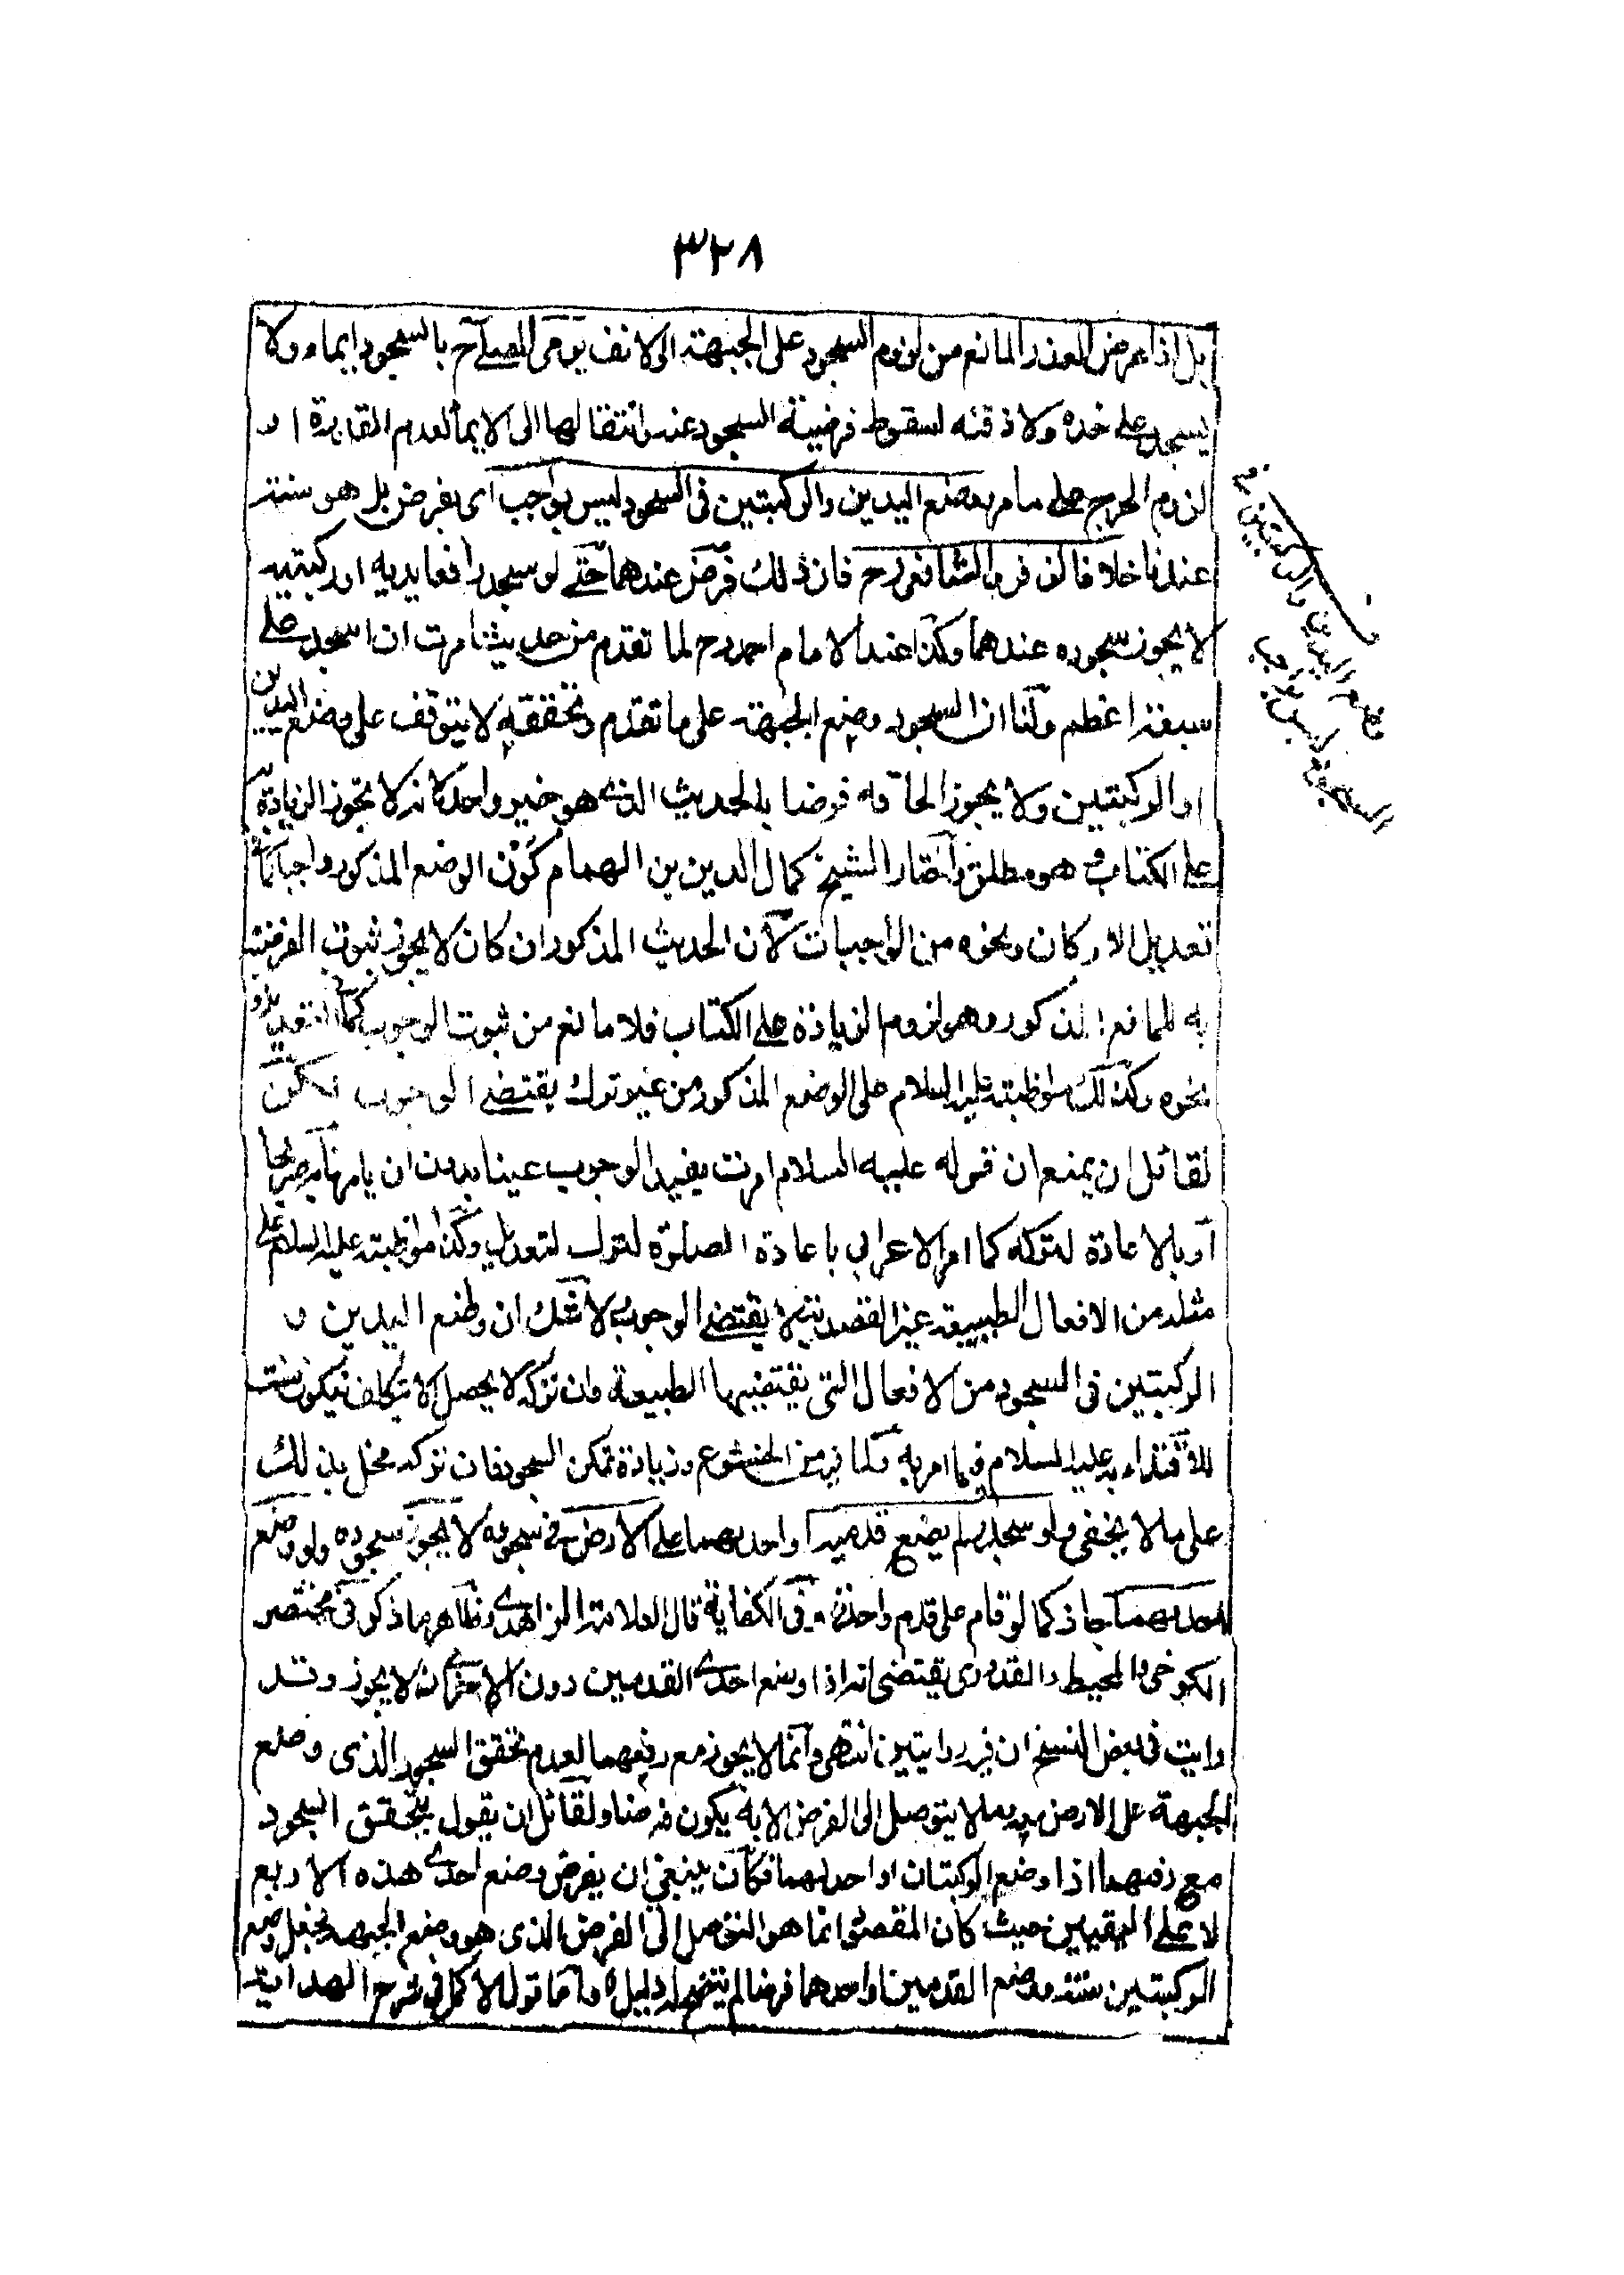 ٣٢٨
بل اذا عرض العذر المانع من لزوم السجود على الجبهة الى الانف يومى المصلے ح بالسجود ايماء ولا
يسجد علے خده ولا ذقنه لسقوط فرضية السجود عند انتقالها الى الايماء لعدم القدرة او
لزوم الحرج علے ما مر وضع اليدين والركبتين فى السجود ليس بواجب اى بفرض بل هو سنة
عندنا خلافا لزفر والشافعى رح فان ذلك فرض عندهما حتے لو سجد رافعا يديه او ركبتيه
لا يجوز سجوده عندهما وكذا عند الامام احمد رح لما تقدم من حديث امرت ان اسجد علے
سبعة اعظم ولنا ان السجود وضع الجبهة على ما تقدم وتحققه لا يتوقف على وضع اليدين
او الركبتين ولا يجوز الحاقه فرضا بالحديث الذے هو خبر واحد لانه لا تجوز الزيادة به
علے الكتاب وهو مطلق واختار الشيخ كمال الدين بن الهمام كون الوضع المذكور واجبا كما
تعديل الاركان ونحوه من الواجبات لان الحديث المذكور ان كان لا يجوز ثبوت الفرضية
به للمانع المذكور وهو لزوم الزيادة علے الكتاب فلا مانع من ثبوت الوجوب كما فى التعديل و
نحوه وكذلك مواظبته عليه السلام على الوضع المذكور من غير ترك يقتضے الوجوب لكن
لقائل ان يمنع ان قوله عليه السلام امرت يفيد الوجوب عينا بدون ان يامرنا به صريحا
او بالاعادة لتركه كما امر الاعرابى باعادة الصلوة لترك التعديل وكذا مواظبته عليه السلام على
مثله من الافعال الطبيعية غير القصدية لا يقتضے الوجوب لا شك ان وضع اليدين و
الركبتين فى السجود من الافعال التى يقتضيها الطبيعة وان تركه لا يحصل الا بتكلف فيكون سنة
للاقتداء به عليه السلام فيما امر به ولما فيه من الخشوع وزيادة تمكن السجود فان تركه مخل بذلك
على ما لا يخفى ولو سجد ولم يضع قدميه او احدىهما علے الارض فے سجوده لا يجوز سجوده ولو وضع
احدىهما جاز كما لو قام على قدم واحدة وفى الكفاية قال العلامة الزاهدے وظاهر ما ذكر فى مختصر
الكرخى والمحيط والقدورى يقتضى انه اذا وضع احدے القدمين دون الاخرے انه لا يجوز وقد
رايت فى بعض النسخ ان فيه روايتين انتهى وانما لا يجوز مع رفعهما لعدم تحقق السجود الذى وضع
الجبهة على الارض بدونه وما لا يتوصل الى الفرض الا به يكون فرضا ولقائل ان يقول يتحقق السجود
مع رفعهما اذا وضع الركبتان او احدىهما فكان ينبغى ان يفرض وضع احدے هذه الاربع
لا علے اليقين حيث كان المقصود انما هو التوصل الى الفرض الذى هو وضع الجبهة فجعل وضع
الركبتين سنة ووضع القدمين او احدهما فرضا لم يتضح له دليل واما قول الاكمل فى شرح الهداية
وضع اليدين والركبتين فى
السجود ليس بواجب